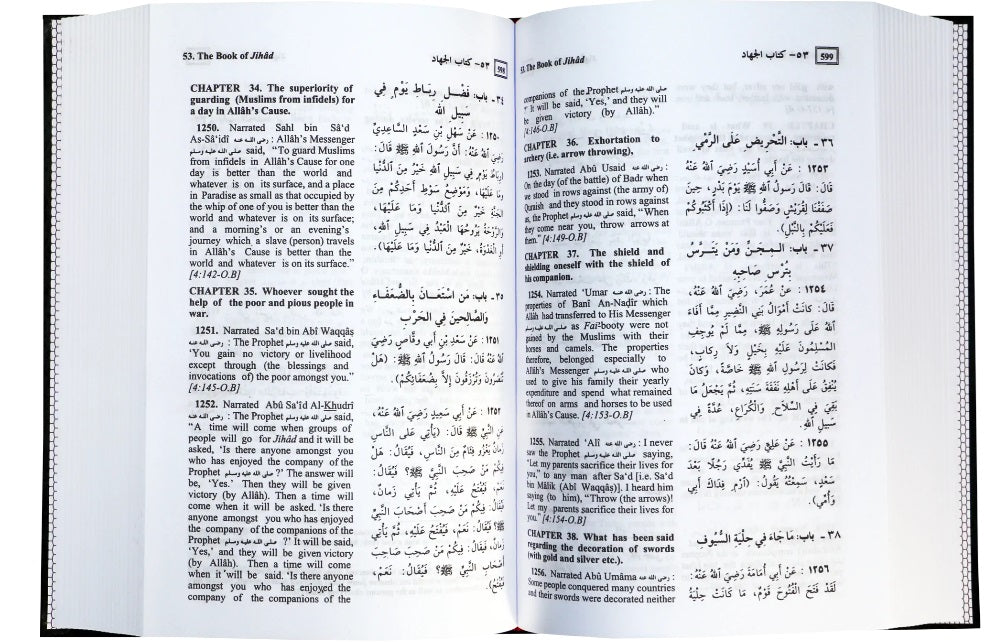 53. The Book of Jihâd
٥٣- كتاب الجهاد
598
CHAPTER 34. The superiority of
guarding (Muslims from infidels) for
a day in Allâh's Cause.
1250. Narrated Sahl bin Sâ'd
As-Sâ'idî رضى الله عنه : Allâh's Messenger
صلى الله عليه وسلم said, "To guard Muslims
from infidels in Allâh's Cause for one
day is better than the world and
whatever is on its surface, and a place
in Paradise as small as that occupied by
the whip of one of you is better than the
world and whatever is on its surface;
and a morning's or an evening's
journey which a slave (person) travels
in Allâh's Cause is better than the
world and whatever is on its surface."
[4:142-O.B]
CHAPTER 35. Whoever sought the
help of the poor and pious people in
war.
1251. Narrated Sa'd bin Abî Waqqâṣ
رضى الله عنه : The Prophet صلى الله عليه وسلم said,
'You gain no victory or livelihood
except through (the blessings and
invocations of) the poor amongst you."
[4:145-O.B]
1252. Narrated Abû Sa'îd Al-Khudrî
رضى الله عنه : The Prophet صلى الله عليه وسلم said,
"A time will come when groups of
people will go for Jihâd and it will be
asked, 'Is there anyone amongst you
who has enjoyed the company of the
Prophet صلى الله عليه وسلم ?' The answer will
be, 'Yes.' Then they will be given
victory (by Allâh). Then a time will
come when it will be asked. 'Is there
anyone amongst you who has enjoyed
the company of the companions of the
Prophet صلى الله عليه وسلم ?' It will be said,
'Yes,' and they will be given victory
(by Allâh). Then a time will come
when it will be said. 'Is there anyone
amongst you who has enjoyed the
company of the companions of the
٣٤ - باب: فَضْلِ رِبَاطِ يَوْمٍ فِي
سَبِيلِ الله
١٢٥٠ : عَنْ سَهْلِ بْنِ سَعْدٍ السَّاعِدِيِّ
رَضِيَ اللهُ عَنْهُ: أَنَّ رَسُولَ اللهِ ﷺ قَالَ:
(رِبَاطُ يَوْمٍ فِي سَبِيلِ اللهِ خَيْرٌ مِنَ الدُّنْيَا
وَمَا عَلَيْهَا، وَمَوْضِعُ سَوْطِ أَحَدِكُمْ مِنَ
الجَنَّةِ خَيْرٌ مِنَ الدُّنْيَا وَمَا عَلَيْهَا،
وَالرَّوْحَةُ يَرُوحُهَا الْعَبْدُ فِي سَبِيلِ اللهِ،
أَوِ الْغَدْوَةُ، خَيْرٌ مِنَ الدُّنْيَا وَمَا عَلَيْهَا).
٣٥ - باب: مَنِ اسْتَعَانَ بِالضُّعَفَاءِ
وَالصَّالِحِينَ فِي الحَرْبِ
١٢٥١ : عَنْ سَعْدِ بْنِ أَبِي وقَّاصٍ رَضِيَ
اللهُ عَنْهُ قَالَ: قَالَ رَسُولُ اللهِ ﷺ: (هَلْ
تُنْصَرُونَ وَتُرْزَقُونَ إِلَّا بِضُعَفَائِكُمْ).
١٢٥٢ : عَنْ أَبِي سَعِيدٍ رَضِيَ اللهُ عَنْهُ،
عَنِ النَّبِيِّ ﷺ قَالَ: (يَأْتِي عَلَى النَّاسِ
زَمَانٌ يَغْزُو فِئَامٌ مِنَ النَّاسِ، فَيُقَالُ: هَلْ
فِيكُمْ مَنْ صَحِبَ النَّبِيَّ ﷺ؟ فَيُقَالُ:
نَعَمْ، فَيُفْتَحُ عَلَيْهِ، ثُمَّ يَأْتِي زَمَانٌ،
فَيُقَالُ: فِيكُمْ مَنْ صَحِبَ أَصْحَابَ النَّبِيِّ
ﷺ؟ فَيُقَالُ: نَعَمْ، فَيُفْتَحُ، ثُمَّ يَأْتِي
زَمَانٌ، فَيُقَالُ: فِيكُمْ مَنْ صَحِبَ صَاحِبَ
أَصْحَابِ النَّبِيِّ ﷺ؟ فَيُقَالُ: نَعَمْ،
فَيُفْتَحُ).
53. The Book of Jihâd
٥٣- كتاب الجهاد
599
companions of the Prophet صلى الله عليه وسلم
?' It will be said, 'Yes,' and they will
be given victory (by Allâh)."
[4:146-O.B]
CHAPTER 36. Exhortation to
archery (i.e. arrow throwing),
1253. Narrated Abû Usaid رضى الله عنه :
On the day (of the battle) of Badr when
we stood in rows against (the army of)
Quraish and they stood in rows against
us, the Prophet صلى الله عليه وسلم said, "When
they come near you, throw arrows at
them." [4:149-O.B]
CHAPTER 37. The shield and
shielding oneself with the shield of
his companion.
1254. Narrated 'Umar رضى الله عنه : The
properties of Banî An-Naḍîr which
Allâh had transferred to His Messenger
صلى الله عليه وسلم as Fai²-booty were not
gained by the Muslims with their
horses and camels. The properties
therefore, belonged especially to
Allâh's Messenger صلى الله عليه وسلم who
used to give his family their yearly
expenditure and spend what remained
thereof on arms and horses to be used
in Allâh's Cause. [4:153-O.B]
1255. Narrated 'Alî رضى الله عنه : I never
saw the Prophet صلى الله عليه وسلم saying,
"Let my parents sacrifice their lives for
you," to any man after Sa'd [i.e. Sa'd
bin Mâlik (Abî Waqqâṣ)]. I heard him
saying (to him), "Throw (the arrows)!
Let my parents sacrifice their lives for
you." [4:154-O.B]
CHAPTER 38. What has been said
regarding the decoration of swords
(with gold and silver etc.).
1256. Narrated Abû Umâma رضى الله عنه :
Some people conquered many countries
and their swords were decorated neither
٣٦ - باب: التَّحْرِيضِ عَلَى الرَّمْيِ
١٢٥٣ : عَنْ أَبِي أُسَيْدٍ رَضِيَ اللهُ عَنْهُ
قَالَ: قَالَ رَسولُ اللهِ ﷺ يَوْمَ بَدْرٍ، حِينَ
صَفَفْنَا لِقُرَيْشٍ وَصَفُّوا لَنَا: (إِذَا أَكْثَبُوكُمْ
فَعَلَيْكُمْ بِالنَّبْلِ).
٣٧ - باب: المِجَنِّ وَمَنْ يَتَرَّسُ
بِتُرْسِ صَاحِبِهِ
١٢٥٤ : عَنْ عُمَرَ، رَضِيَ اللهُ عَنْهُ،
قَالَ: كَانَتْ أَمْوَالُ بَنِي النَّضِيرِ مِمَّا أَفَاءَ
اللهُ عَلَى رَسُولِهِ ﷺ، مِمَّا لَمْ يُوجِفِ
المُسْلِمُونَ عَلَيْهِ بِخَيْلٍ وَلَا رِكابٍ،
فَكانَتْ لِرَسُولِ اللهِ ﷺ خَاصَّةً، وَكَانَ
يُنْفِقُ عَلَى أَهْلِهِ نَفَقَةَ سَنَتِهِ، ثُمَّ يَجْعَلُ مَا
بَقِيَ فِي السِّلَاحِ وَالْكُرَاعِ، عُدَّةً فِي
سَبِيلِ اللهِ.
١٢٥٥ : عَنْ عَلِيٍّ رَضِيَ اللهُ عَنْهُ قَالَ:
مَا رَأَيْتُ النَّبِيَّ ﷺ يُفَدِّي رَجُلًا بَعْدَ
سَعْدٍ، سَمِعْتُهُ يَقُولُ: (ارْمِ فِدَاكَ أَبِي
وَأُمِّي).
٣٨ - باب: مَا جَاءَ فِي حلْيَةِ السُّيُوفِ
١٢٥٦ : عَنْ أَبِي أُمَامَةَ رَضِيَ اللهُ عَنْهُ:
لَقَدْ فَتَحَ الْفُتُوحَ قَوْمٌ، مَا كَانَتْ حِلْيَةُ